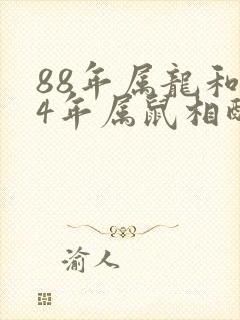 88年属龍和
4年属鼠相配
渝人